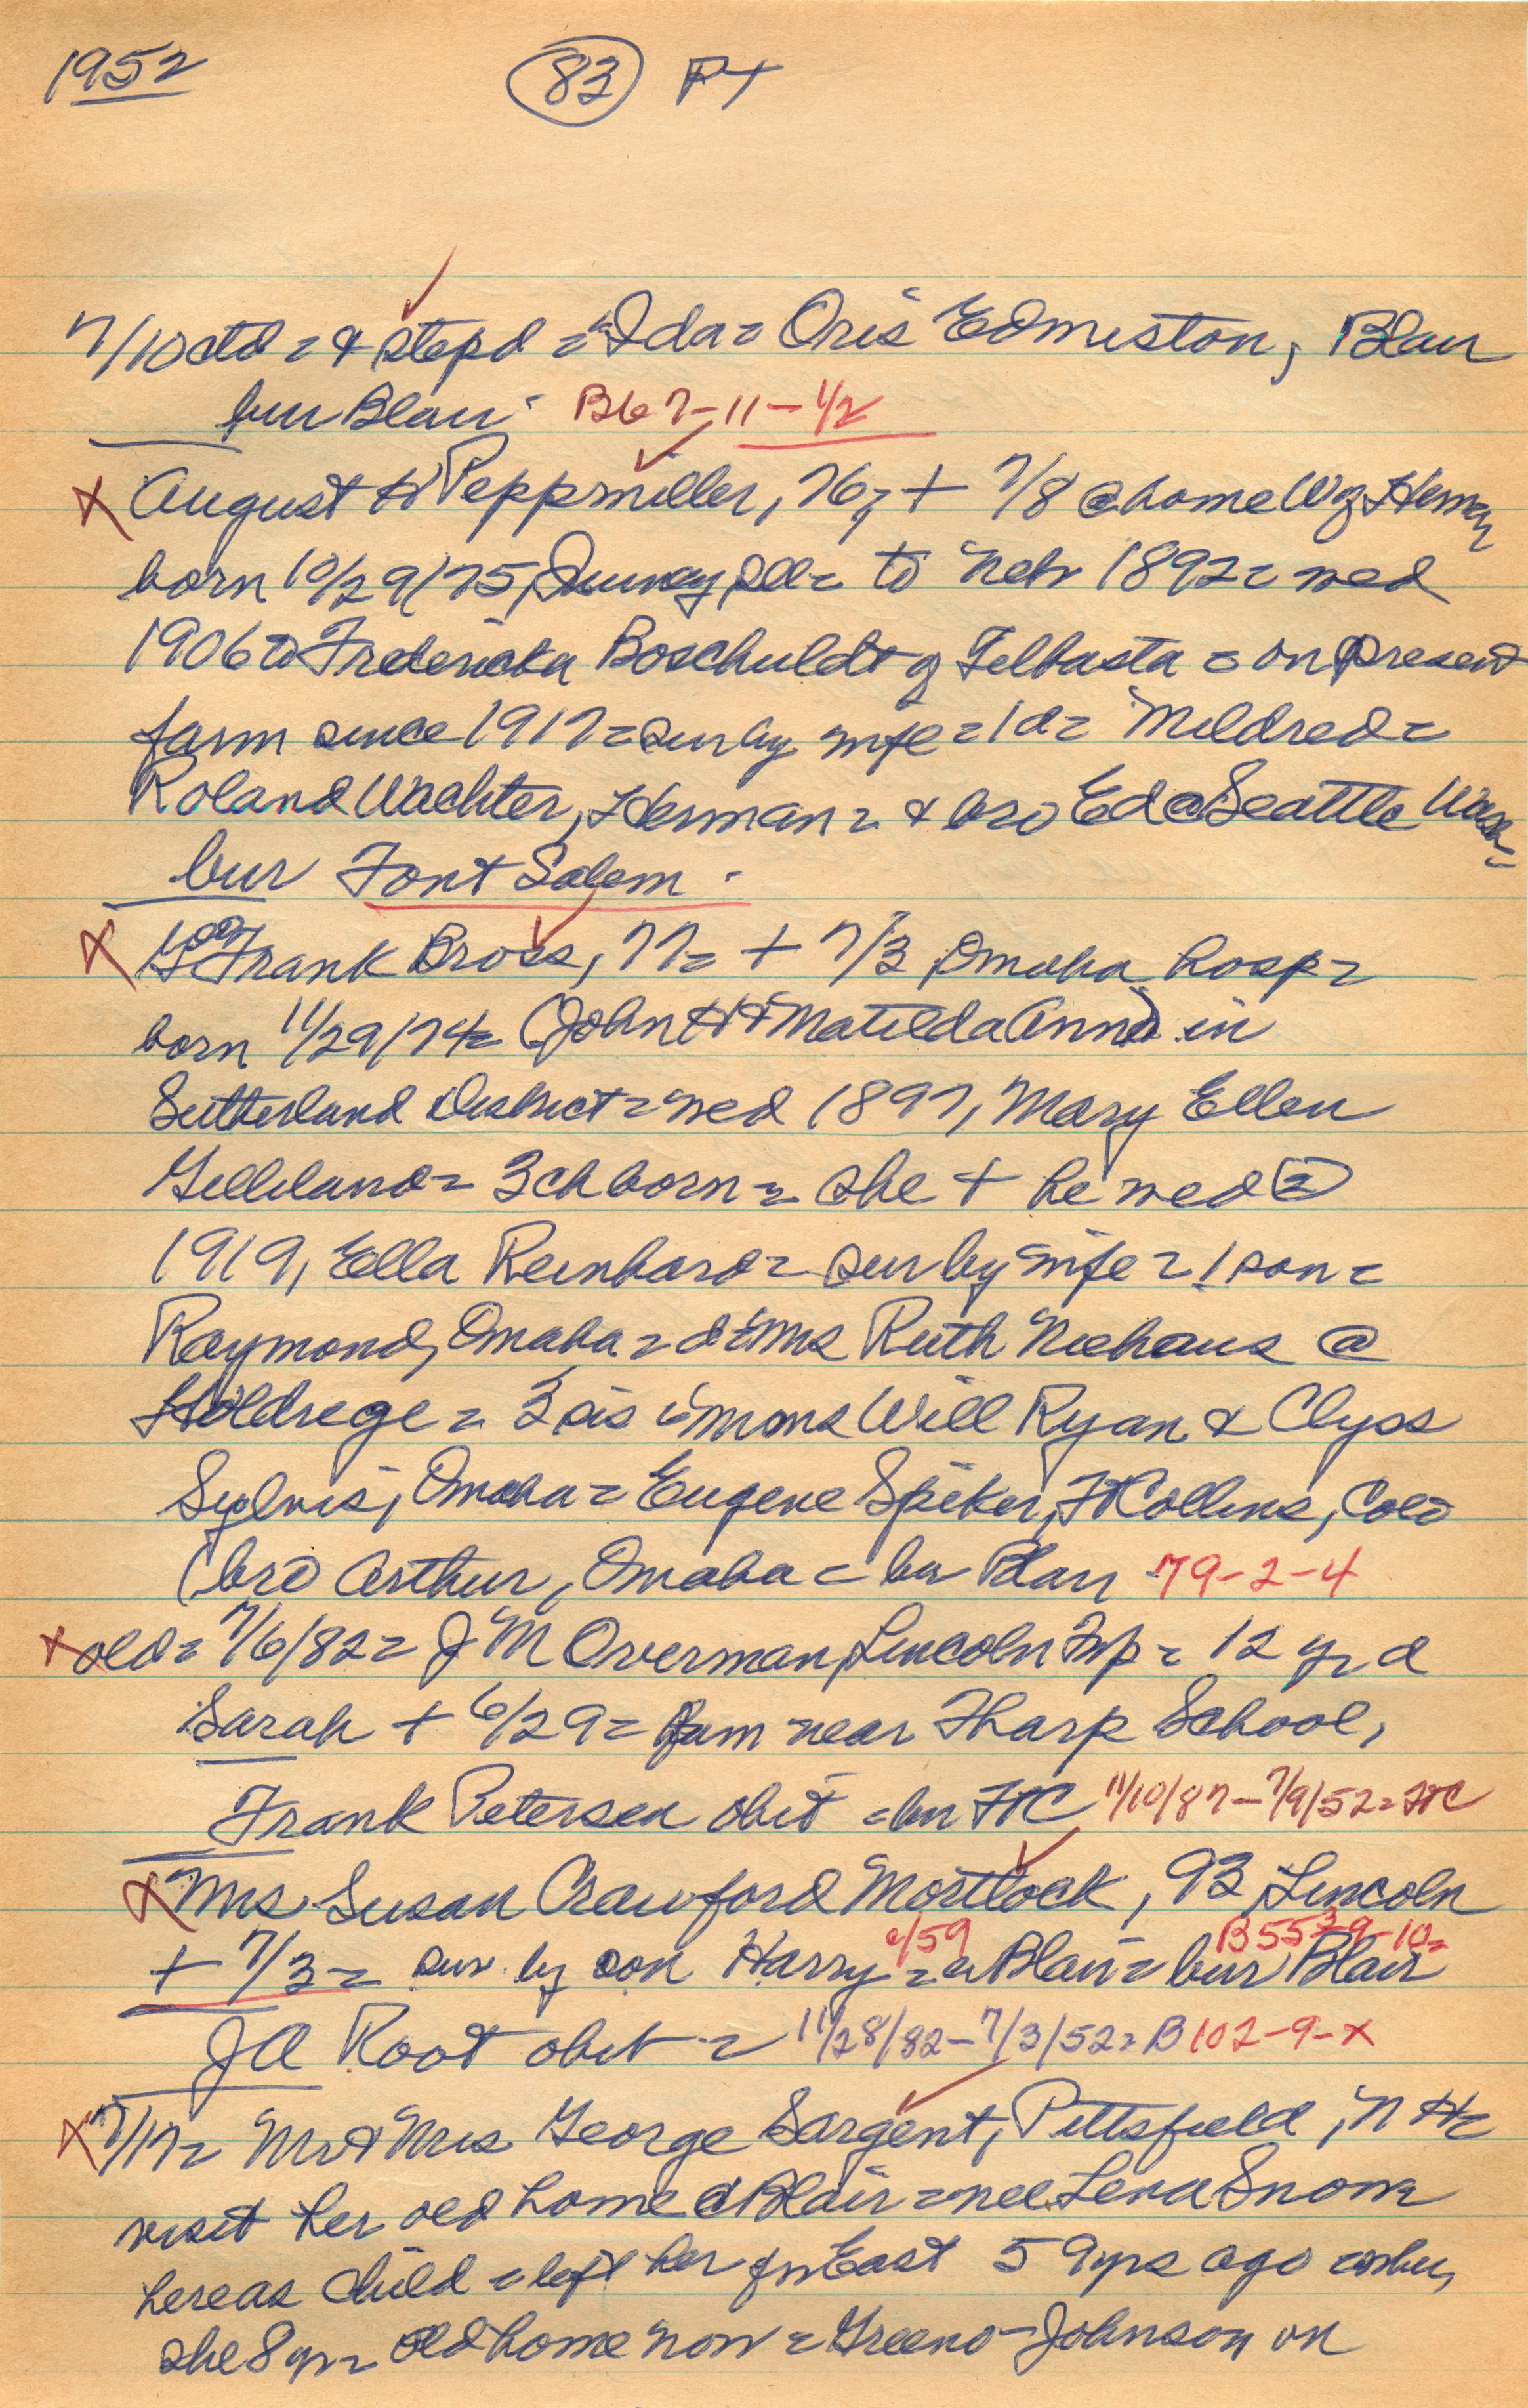 1952 83 PT
7/10 ctd = & stepd = Ida = Oris Edmiston, Blair
bur Blair - B67-11-1/2
X August H Peppmiller, 76, + 7/8 @ home W of Herman
born 10/29/75, Quincy, Ill = to Neb 1892 = wed
1906 to Fredericka Boschuldt of Telbasta = on present
farm since 1917 = sur by wife = 1 d = Mildred =
Roland Wachter, Herman = & bro Ed @ Seattle Wash =
bur Font Salem -
X Frank Bross, 77 = + 7/3 Omaha hosp =
born 11/29/74 = (John H + Matilda Ann) in
Sutherland District = wed 1897, Mary Ellen
Gilleland = 3 ch born = she + he wed 2
1919, Ella Reinhard = sur by wife = 1 son =
Raymond, Omaha = d = Mrs Ruth Niehaus @
Holdrege = 3 sis = mms Will Ryan & Clyss
Sylvis, Omaha = Eugene Spiker, Ft Collins, Colo
(bro Arthur, Omaha = bur Blair 79-2-4
X old = 7/6/82 = J M Overman, Lincoln Twp = 12 yr d
Sarah + 6/29 = farm near Tharp School,
Frank Petersen obit = bur FtC 11/10/87-7/9/52 = FtC
X Mrs Susan Crawford Mortlock, 93, Lincoln
/59 B553-9-10=
+ 7/3 = sur. by son Harry = @ Blair = bur Blair
JA Root obit = 11/28/82-7/3/52 = B102-9-X
X 7/17 = Mr & Mrs George Sargent, Pittsfield, N H =
visit her old home @ Blair = nee Lena Snow
here as child = left her for East 59 yrs ago when
she 8 yr = old home now = Greeno-Johnson on